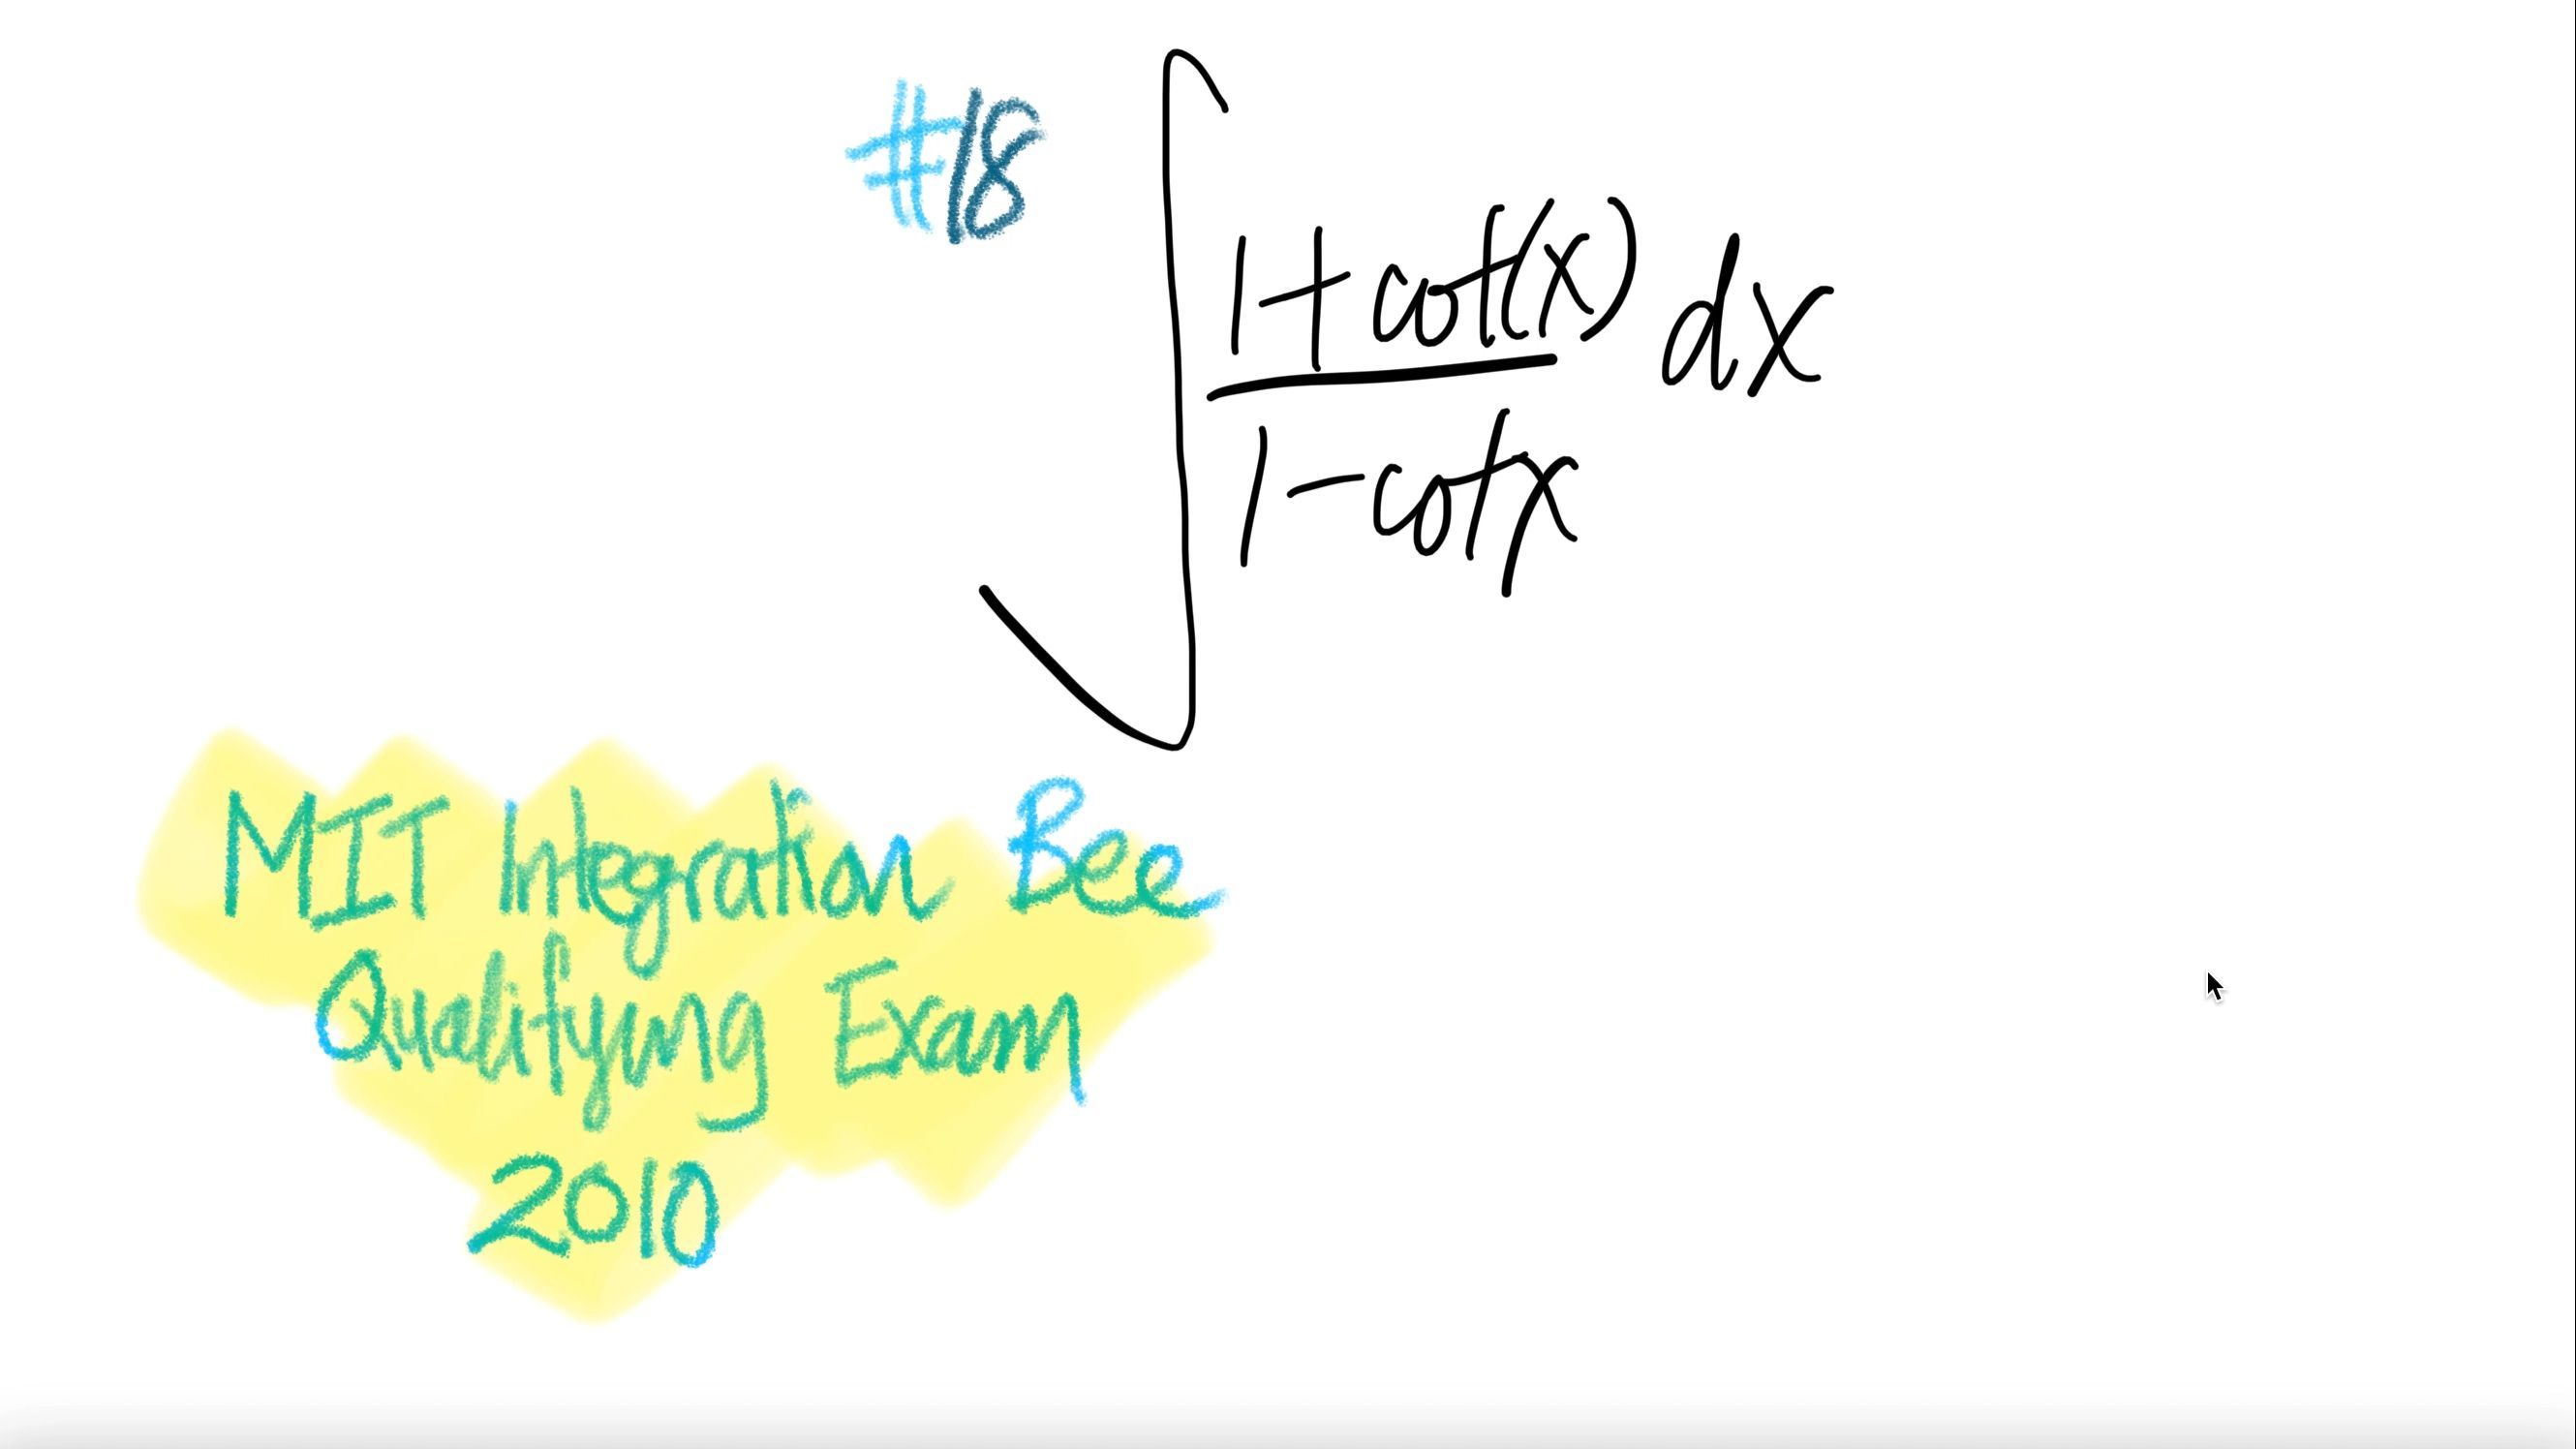 #18
∫ 1+cot(x) dx
1-cotx
MIT Integration Bee
Qualifying Exam
2010